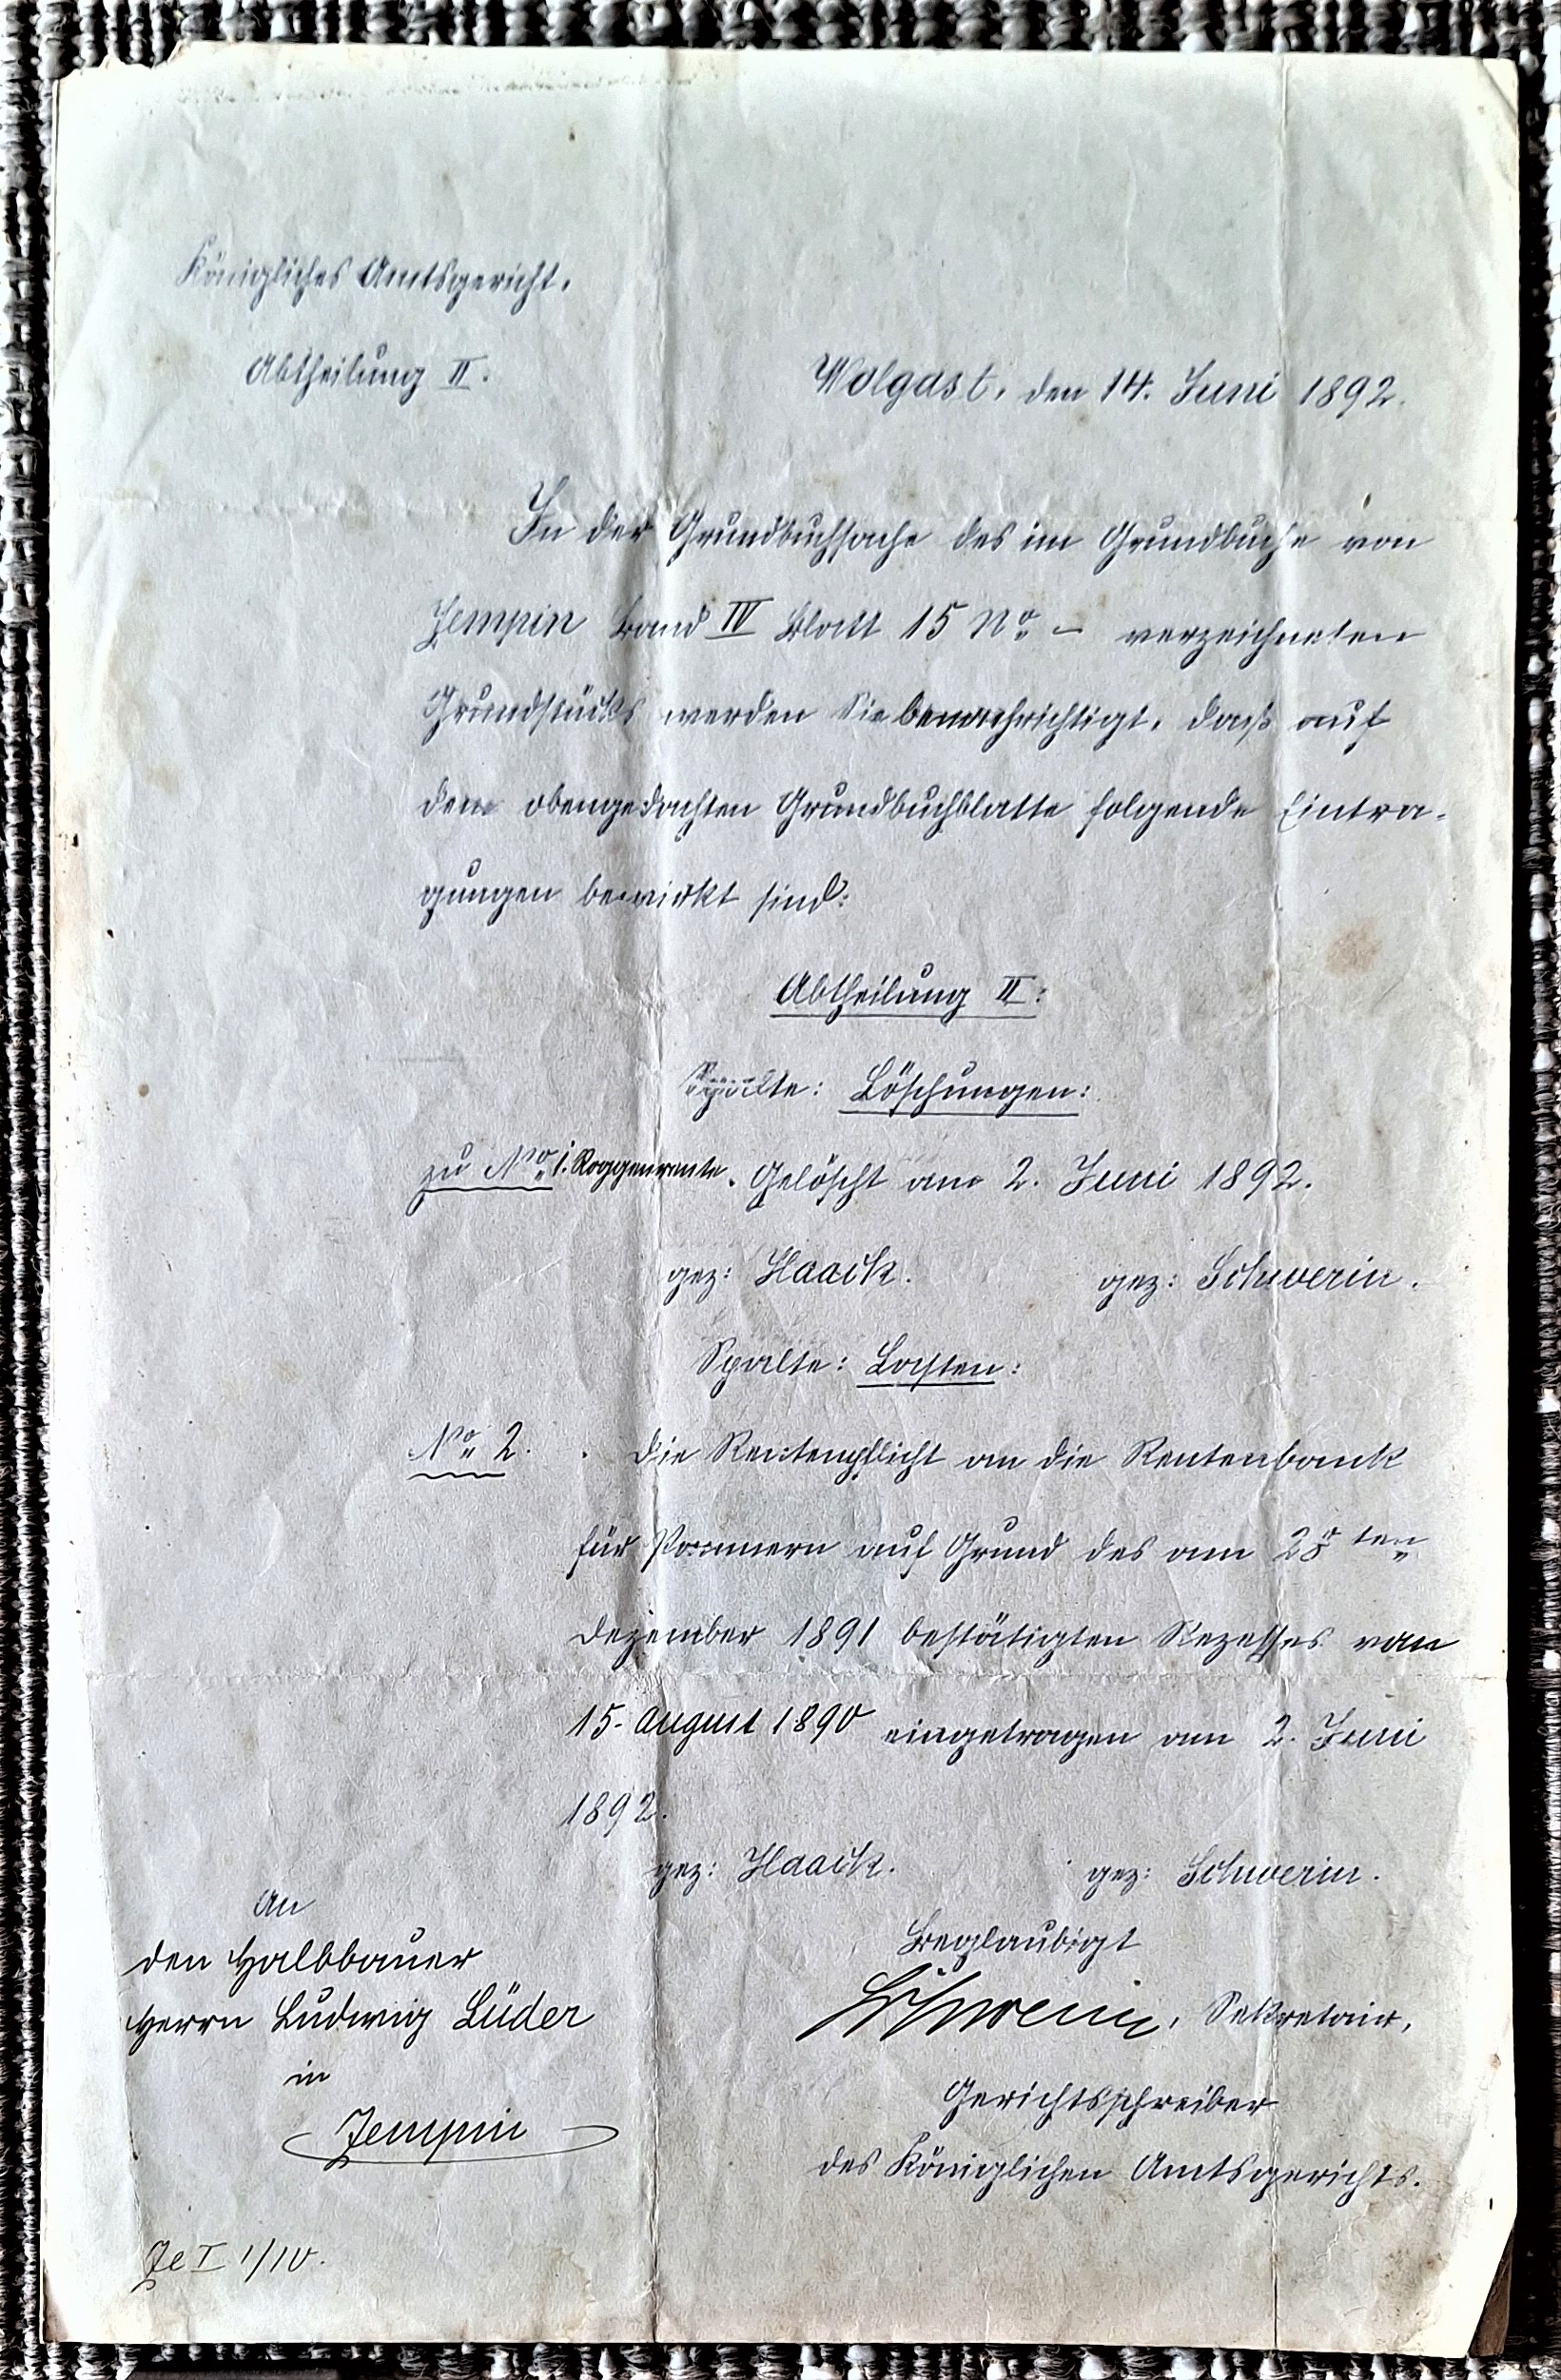 Königliches Amtsgericht.
Abtheilung II.
Wolgast, den 14. Juni 1892.
In der Grundbuchsache des im Grundbuche von
Zempin Band IV Blatt 15 No. – verzeichneten
Grundstücks werden Sie benachrichtigt, daß auf
dem obengedachten Grundbuchblatte folgende Eintra-
gungen bewirkt sind:
Abtheilung II:
Spalte: Löschungen:
zu No. 1. Roggenrente. Gelöscht am 2. Juni 1892.
gez: Haack. gez: Schwerin.
Spalte: Lasten:
No. 2. Die Rentenpflicht an die Rentenbank
für Pommern auf Grund des am 28ten
Dezember 1891 bestätigten Rezesses vom
15. August 1890 eingetragen am 2. Juni
1892.
gez: Haack. gez: Schwerin.
Beglaubigt
Schwerin, Sekretair,
Gerichtsschreiber
des Königlichen Amtsgerichts.
An
den Halbbauer
Herrn Ludwig Lüder
in
Zempin
Ze I 1/10.